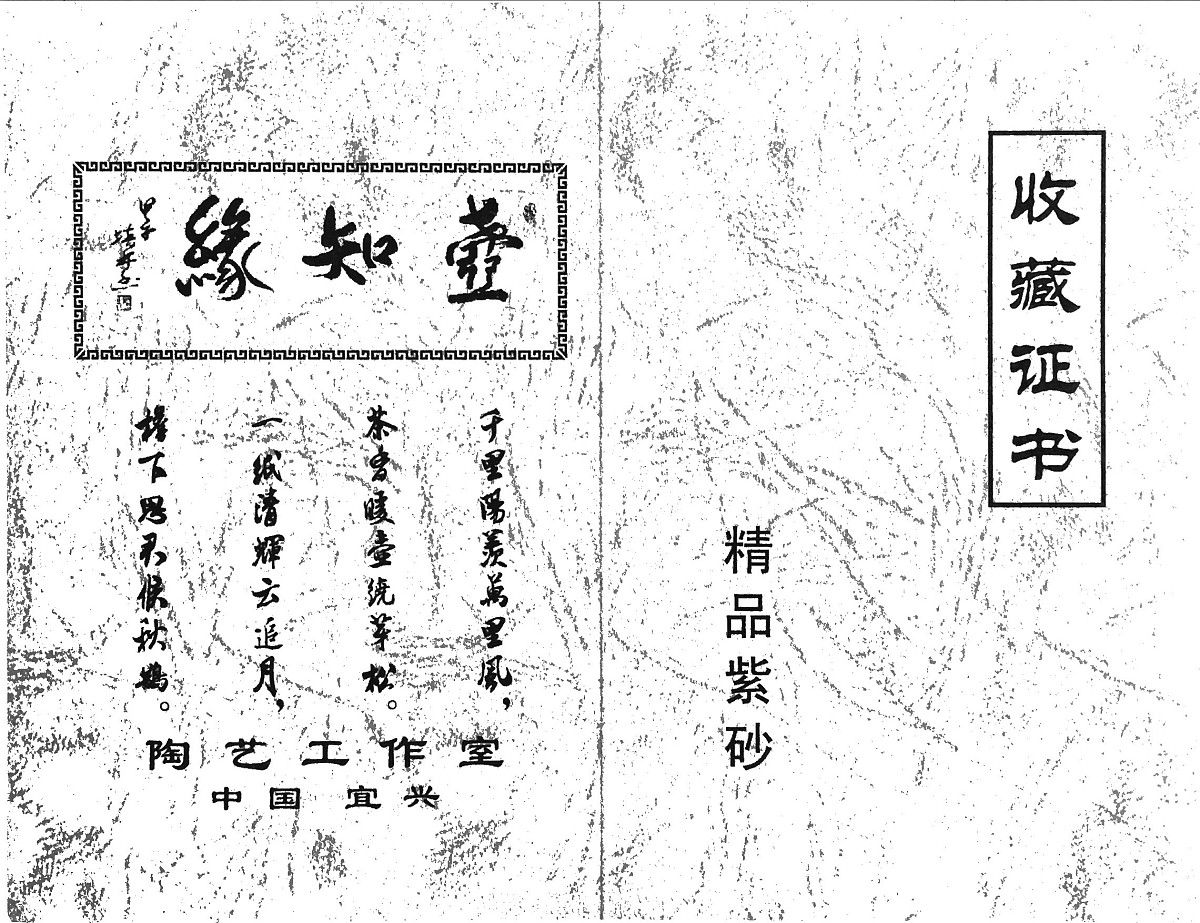 收藏证书
精品紫砂
壺知緣
甲子
千里陽羨萬里風，
茶香暖壺繞芽松。
一紙清輝云追月，
下思君候秋。
陶艺工作室
中国 宜兴